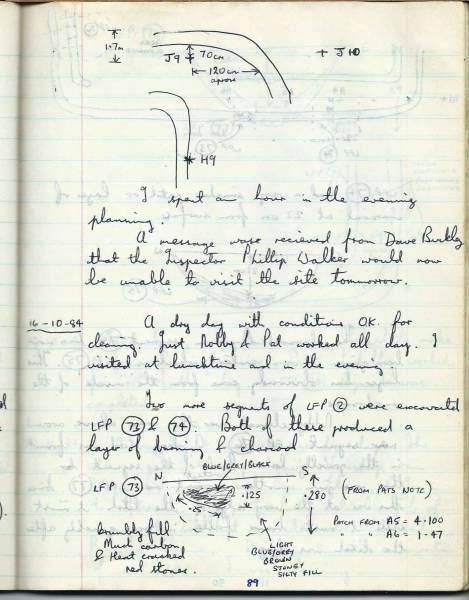 1.7m
J9 70cm
120cm
aprox
+ J10
H9
I spent an hour in the evening
planning.
A message was recieved from Dave Buckley
that the Inspector Phillip Walker would now
be unable to visit the site tommorrow.
16-10-84
A dry day with conditions OK. for
cleaning. Just Nobby & Pat worked all day. I
visited at lunchtime and in the evening.
Two more segments of LFP (2) were excavated
LFP (73) & (74). Both of these produced a
layer of burning & charcoal
BLUE/GREY/BLACK
LFP (73) N S
.25 .125 .280 (FROM PATS NOTE)
PATCH FROM A5 = 4.100
" " A6 = 1.47
Crumbly fill
Much carbon
& Heat cracked
red stones.
LIGHT
BLUE/GREY
BROWN
STONEY
SILTY FILL
89